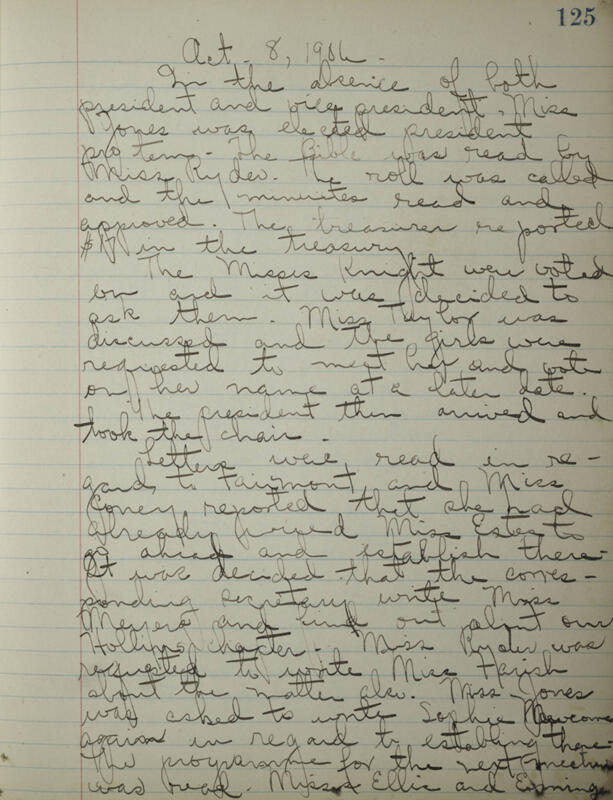 125
Oct. 8, 1906.
In the absence of both
president and vice president, Miss
Jones was elected president
pro tem. The Bible was read by
Miss Ryder. The roll was called
and the minutes read and
approved. The treasurer reported
in the treasury.
The Misses Knight were voted
on and it was decided to
ask them. Miss Taylor was
discussed and the girls were
requested to meet her and vote
on her name at a later date.
The president then arrived and
took the chair.
Letters were read in re-
gard to Fairmont, and Miss
Coney reported that she had
already urged Miss Estes to
go ahead and establish there.
It was decided that the corres-
ponding secretary write Miss
Meyers and find out about our
Hollins chapter. Miss Ryder was
requested to write Miss Parish
about the matter also. Miss Jones
was asked to write Sophie Newcomb
again in regard to establing there.
The programme for the next meeting
was read. Misses Ellis and